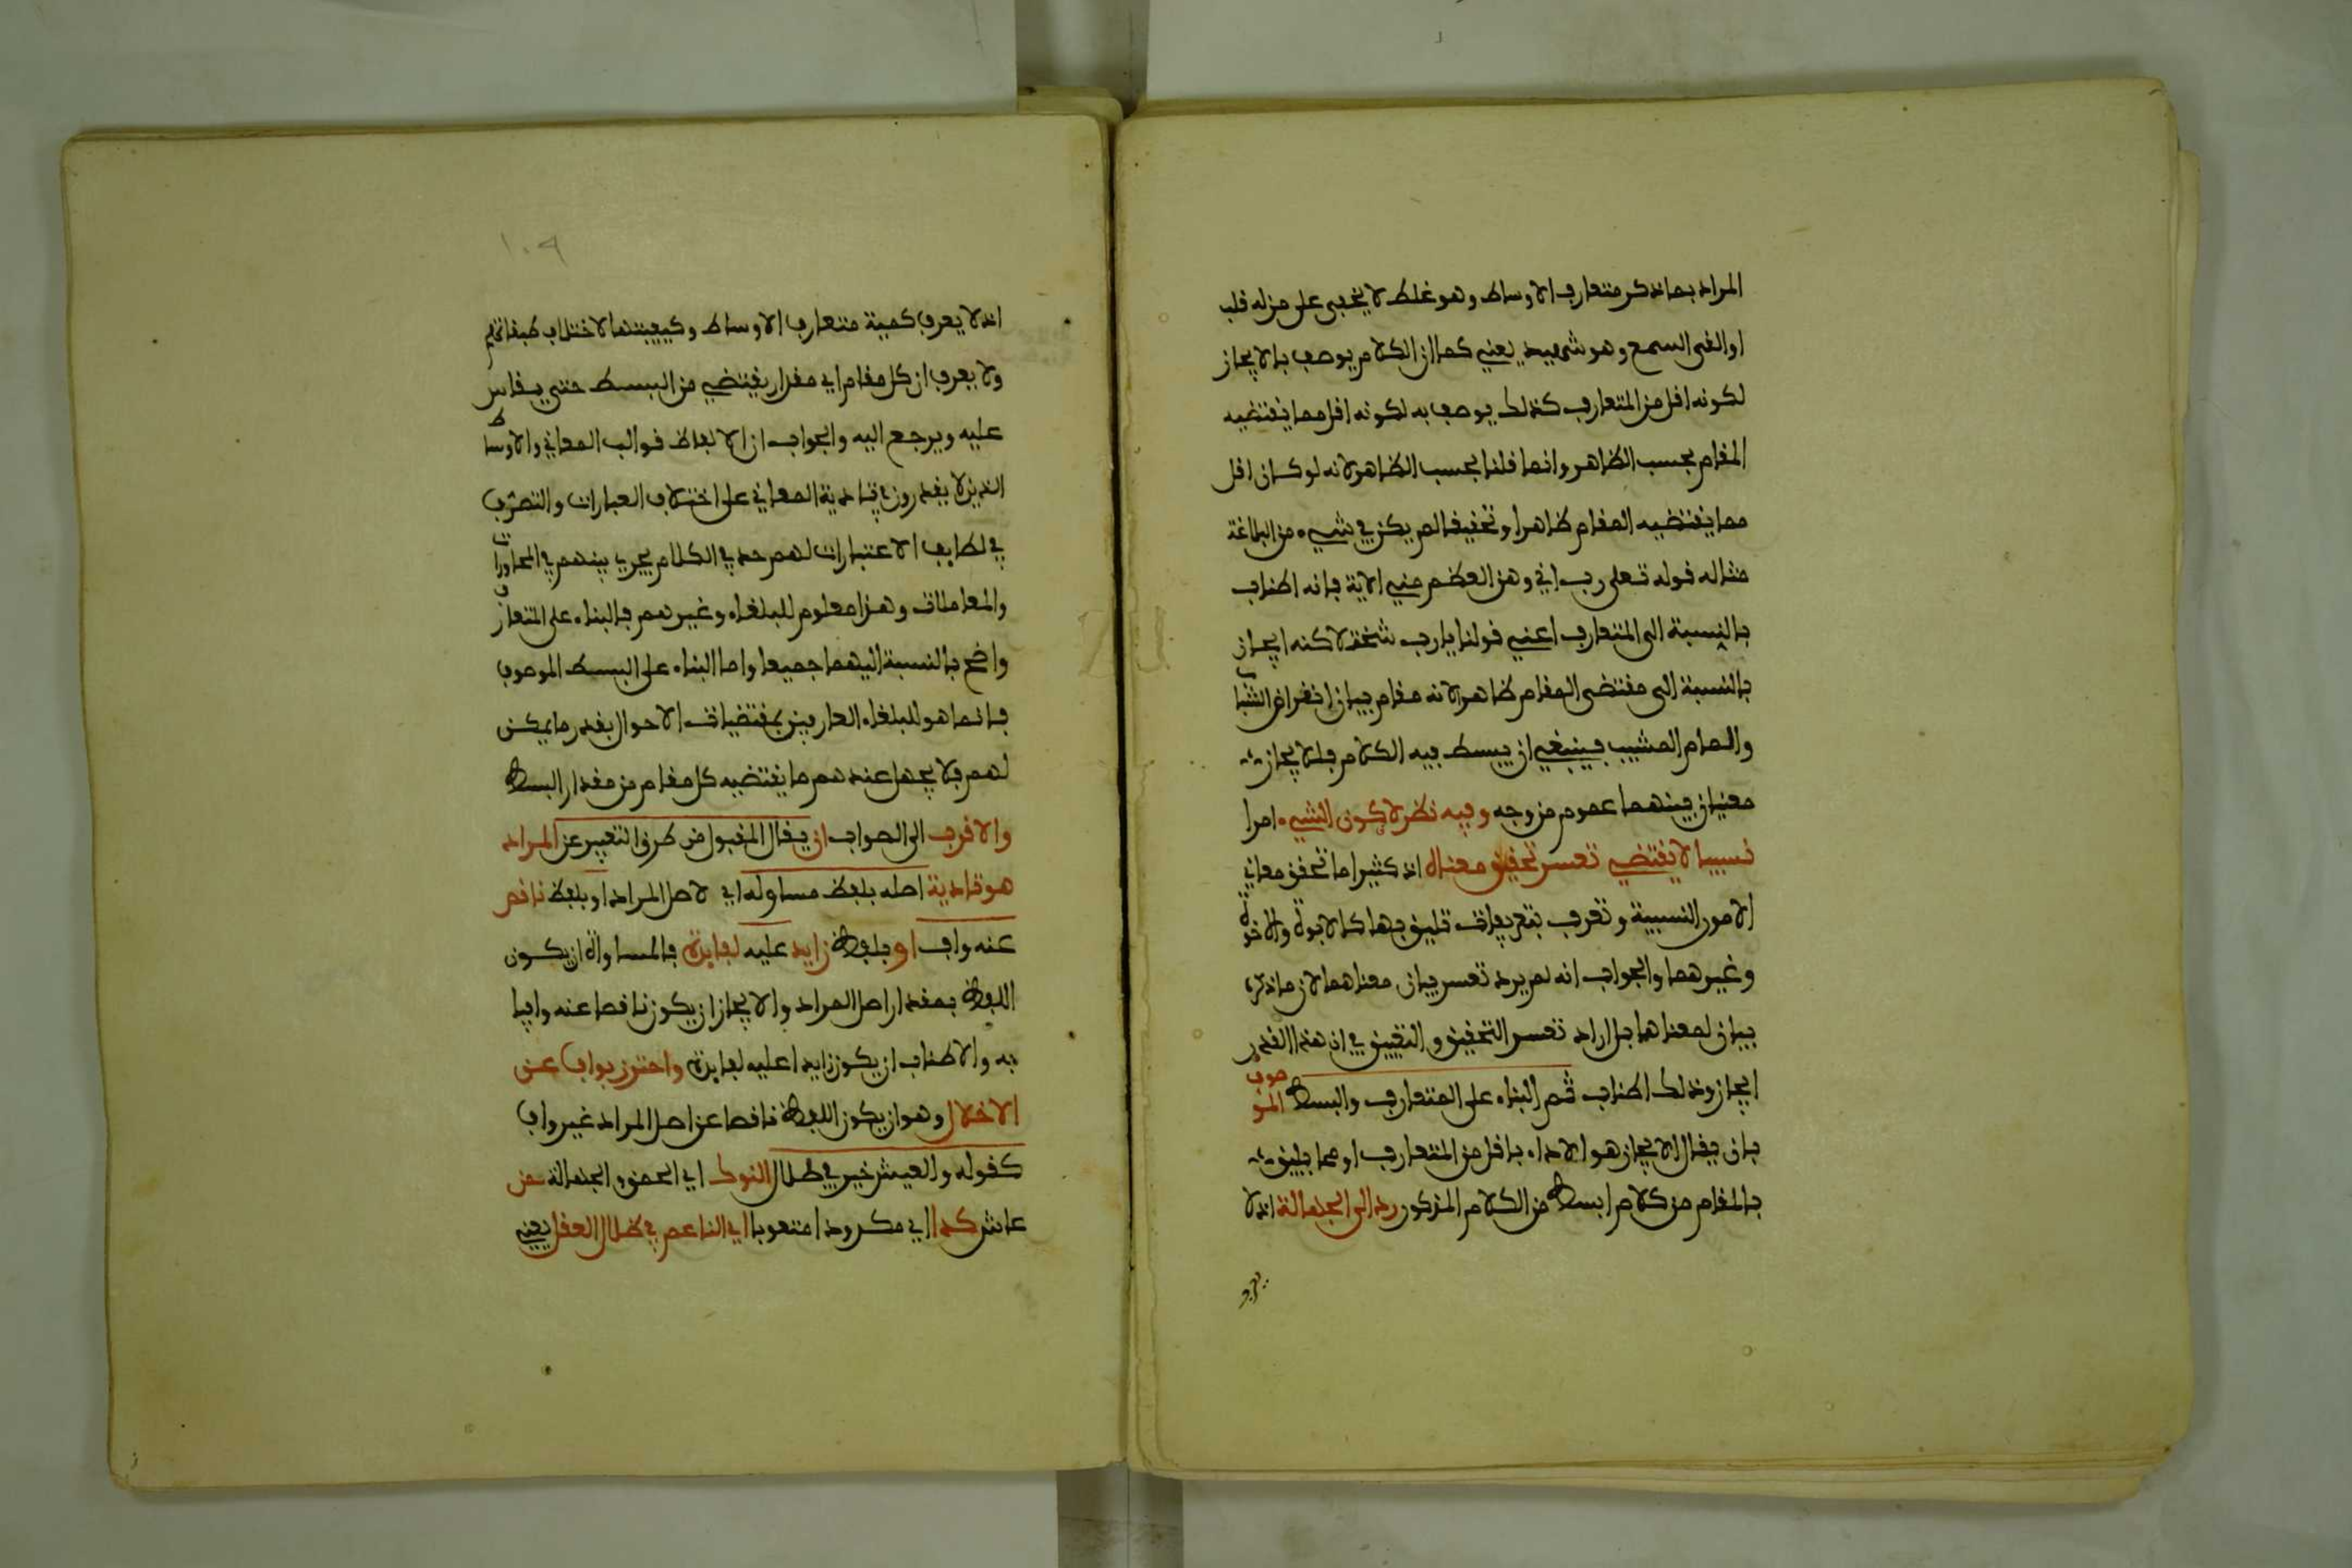 المراد بما ذكر متعارف الاوساط وهو غلط لا يخفى على من له قلب
او القى السمع وهو شهيد يعني كما ان الكلام يوصف بالايجاز
لكونه اقل من المتعارف كذلك يوصف به لكونه اقل مما يقتضيه
المقام بحسب الظاهر وانما قلنا بحسب الظاهر لانه لو كان اقل
مما يقتضيه المقام ظاهرا وتحقيقا لم يكن في شيء من البلاغة
مثاله قوله تعلى رب اني وهن العظم مني الاية فانه اطناب
بالنسبة الى المتعارف اعني قولنا يا رب شخت لاكنه ايجاز
بالنسبة الى مقتضى المقام ظاهرا لانه مقام بيان انقراض الشباب
والمام المشيب فينبغي ان يبسط فيه الكلام فللايجاز
معنيان بينهما عموم من وجه وفيه نظر لا كون الشيء امرا
نسبيا لا يقتضي تعسر تحقيق معناه اذ كثيرا ما تحقق معاني
الامور النسبية وتعرف بتعريفات تليق بها كالابوة والاخوة
وغيرهما والجواب انه لم يرد تعسر بيان معناهما لان ما ذكره
بيان لمعناهما بل اراد تعسر التحقيق والتعيين في ان هذا القدر
ايجاز وذلك اطناب ثم البناء على المتعارف والبسط الموصوف
بان يقال الايجاز هو الاداء باقل من المتعارف او مما يليق
بالمقام من كلام ابسط من الكلام المذكور رد الى الجهالة اذ لا
يعرف
١٠٩
اذ لا يعرف كمية متعارف الاوساط وكيفيتها لاختلاف طبقاتهم
ولا يعرف ان كل مقام اي مقدار يقتضي من البسط حتى يقاس
عليه ويرجع اليه والجواب ان الالفاظ قوالب المعاني والاوساط
الذين لا يقدرون في تادية المعاني على اختلاف العبارات والتصرف
في لطايف الاعتبارات لهم حد في الكلام يجري بينهم في المحاورات
والمعاملات وهذا معلوم للبلغاء وغيرهم فالبناء على المتعارف
واضح بالنسبة اليهما جميعا واما البناء على البسط الموصوف
فانما هو للبلغاء العارفين بمقتضيات الاحوال بقدر ما يمكن
لهم فلا يجهل عندهم ما يقتضيه كل مقام من مقدار البسط
والاقرب الى الصواب ان يقال المقبول من طرق التعبير عن المراد
هو تادية اصله بلفظ مساو له اي لاصل المراد او بلفظ ناقص
عنه واف او بلفظ زايد عليه لفايدة فالمساواة ان يكون
اللفظ بمقدار اصل المراد والايجاز ان يكون ناقصا عنه وافيا
به والاطناب ان يكون زايدا عليه لفايدة واحترز بواف عن
الاخلال وهو ان يكون اللفظ ناقصا عن اصل المراد غير واف
كقوله والعيش خير في ظلال النوك اي الحمق والجهالة ممن
عاش كدا اي مكدودا متعوبا اي الناعم في ظلال العقل يعني